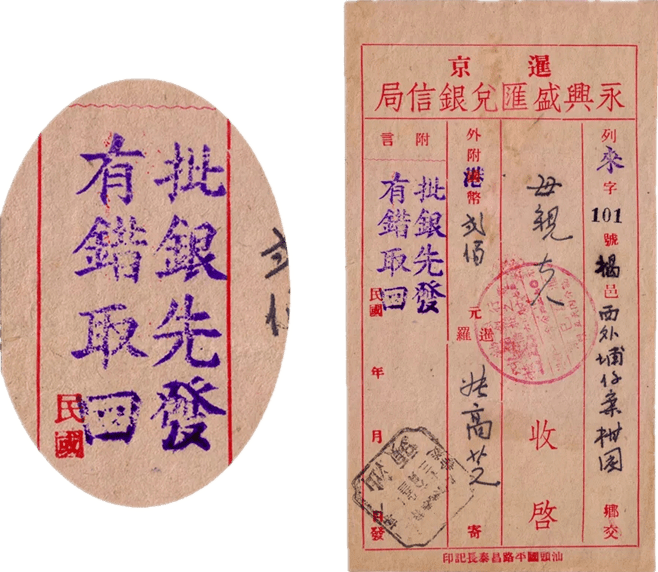 批銀先發
有錯取囬
民國
暹京
永興盛匯兌銀信局
列來字101號揭邑西外埔仔寨柑園鄉交
母親大人收啓
外附港幣弍佰元
暹羅
寄
附言
批銀先發
有錯取囬
民國年月日發
汕頭國平路昌泰長記印